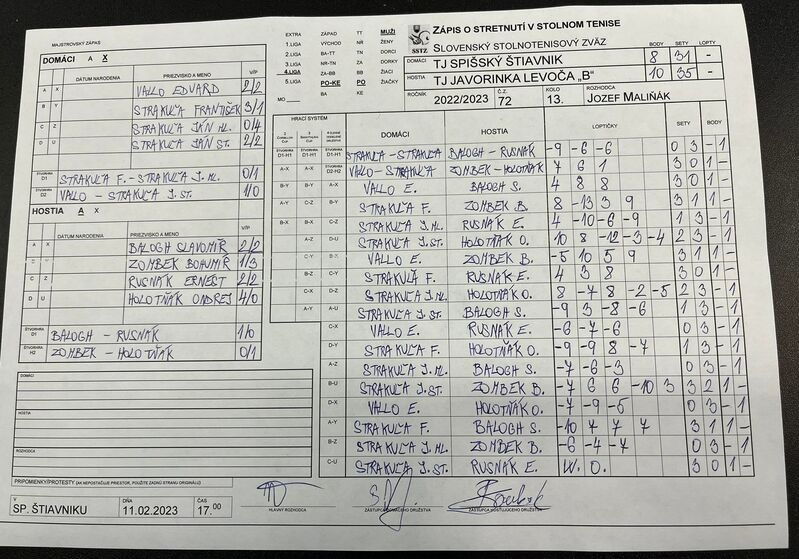 MAJSTROVSKÝ ZÁPAS
DOMÁCI A X
DÁTUM NARODENIA PRIEZVISKO A MENO V/P
A X VALLO EDVARD 2/2
B Y STRAKUĽA FRANTIŠEK 3/1
C Z STRAKUĽA JÁN ML. 0/4
D U STRAKUĽA JÁN ST. 2/2
ŠTVORHRA D1 STRAKUĽA F. - STRAKUĽA J. ML. 0/1
ŠTVORHRA D2 VALLO - STRAKUĽA J. ST. 1/0
HOSTIA A X
DÁTUM NARODENIA PRIEZVISKO A MENO V/P
A X BALOGH SLAVOMÍR 2/2
ZOMBEK BOHUMÍR 1/3
C Z RUSNÁK ERNEST 2/2
D U HOLOTŇÁK ONDREJ 4/0
ŠTVORHRA BALOGH - RUSNÁK 1/0
ŠTVORHRA H2 ZOMBEK - HOLOTŇÁK 0/1
DOMÁCI
HOSTIA
ROZHODCA
PRIPOMIENKY/PROTESTY (AK NEPOSTAČUJE PRIESTOR, POUŽITE ZADNÚ STRANU ORIGINÁLU)
V SP. ŠTIAVNIKU DŇA 11.02.2023 ČAS 17.00
EXTRA ZÁPAD TT MUŽI
1.LIGA VÝCHOD NR ŽENY
2.LIGA BA-TT TN DORCI
3.LIGA NR-TN ZA DORKY
4.LIGA ZA-BB BB ŽIACI
5.LIGA PO-KE PO ŽIAČKY
MO BA KE
SSTZ
ZÁPIS O STRETNUTÍ V STOLNOM TENISE
SLOVENSKÝ STOLNOTENISOVÝ ZVÄZ BODY SETY LOPTY
DOMÁCI TJ SPIŠSKÝ ŠTIAVNIK 8 31 -
HOSTIA TJ JAVORINKA LEVOČA „B" 10 35 -
ROČNÍK 2022/2023 Č.Z. 72 KOLO 13. ROZHODCA JOZEF MALIŇÁK
HRACÍ SYSTÉM DOMÁCI HOSTIA LOPTIČKY SETY BODY
D1-H1 D1-H1 D1-H1 STRAKUĽA - STRAKUĽA BALOGH - RUSNÁK -9 -6 -6 0 3 - 1
A-X A-X D2-H2 VALLO - STRAKUĽA ZOMBEK - HOLOTŇÁK 7 6 1 3 0 1 -
B-Y B-Y A-X VALLO E. BALOGH S. 4 8 8 3 0 1 -
A-Y C-Z B-Y STRAKUĽA F. ZOMBEK B. 8 -13 3 9 3 1 1 -
B-X B-X C-Z STRAKUĽA J. ML. RUSNÁK E. 4 -10 -6 -9 1 3 - 1
A-Z D-U STRAKUĽA J. ST. HOLOTŇÁK O. 10 8 -12 -3 -4 2 3 - 1
C-Y B-X VALLO E. ZOMBEK B. -5 10 5 9 3 1 1 -
B-Z C-Y STRAKUĽA F. RUSNÁK E. 4 3 8 3 0 1 -
C-X D-Z STRAKUĽA J. ML. HOLOTŇÁK O. 8 -7 8 -2 -5 2 3 - 1
A-Y A-U STRAKUĽA J. ST. BALOGH S. -9 3 -8 -6 1 3 - 1
C-X VALLO E. RUSNÁK E. -6 -7 -6 0 3 - 1
D-Y STRAKUĽA F. HOLOTŇÁK O. -9 -9 8 -7 1 3 - 1
A-Z STRAKUĽA J. ML. BALOGH S. -7 -6 -3 0 3 - 1
B-U STRAKUĽA J. ST. ZOMBEK B. -7 6 6 -10 3 3 2 1 -
D-X VALLO E. HOLOTŇÁK O. -7 -9 -5 0 3 - 1
A-Y STRAKUĽA F. BALOGH S. -10 7 7 7 3 1 1 -
B-Z STRAKUĽA J. ML. ZOMBEK B. -6 -4 -7 0 3 - 1
C-U STRAKUĽA J. ST. RUSNÁK E. W. O. 3 0 1 -
HLAVNÝ ROZHODCA ZÁSTUPCA DOMÁCEHO DRUŽSTVA ZÁSTUPCA HOSŤUJÚCEHO DRUŽSTVA